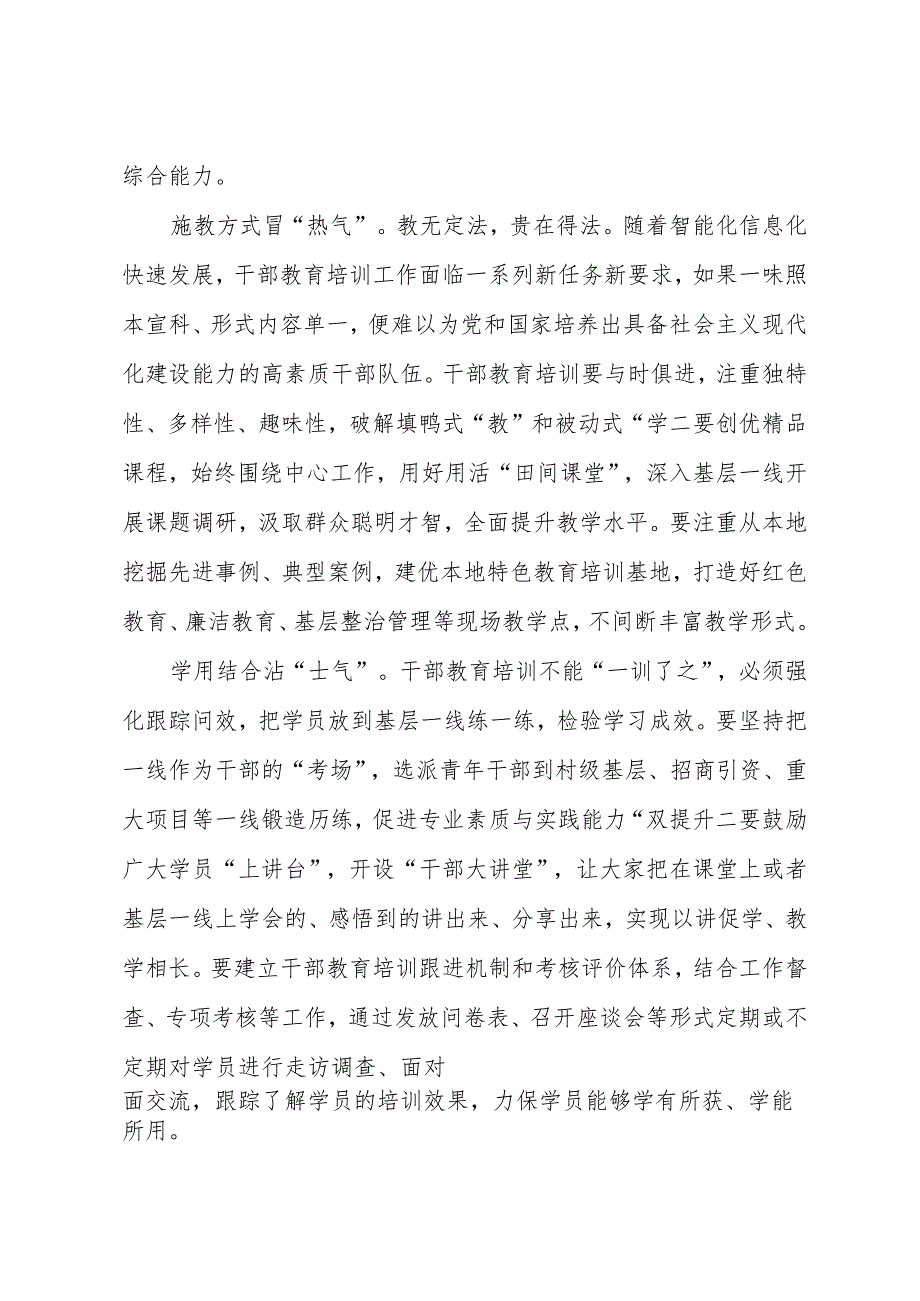 综合能力。
施教方式冒“热气”。教无定法，贵在得法。随着智能化信息化
快速发展，干部教育培训工作面临一系列新任务新要求，如果一味照
本宣科、形式内容单一，便难以为党和国家培养出具备社会主义现代
化建设能力的高素质干部队伍。干部教育培训要与时俱进，注重独特
性、多样性、趣味性，破解填鸭式“教”和被动式“学二要创优精品
课程，始终围绕中心工作，用好用活“田间课堂”，深入基层一线开
展课题调研，汲取群众聪明才智，全面提升教学水平。要注重从本地
挖掘先进事例、典型案例，建优本地特色教育培训基地，打造好红色
教育、廉洁教育、基层整治管理等现场教学点，不间断丰富教学形式。
学用结合沾“士气”。干部教育培训不能“一训了之”，必须强
化跟踪问效，把学员放到基层一线练一练，检验学习成效。要坚持把
一线作为干部的“考场”，选派青年干部到村级基层、招商引资、重
大项目等一线锻造历练，促进专业素质与实践能力“双提升二要鼓励
广大学员“上讲台”，开设“干部大讲堂”，让大家把在课堂上或者
基层一线上学会的、感悟到的讲出来、分享出来，实现以讲促学、教
学相长。要建立干部教育培训跟进机制和考核评价体系，结合工作督
查、专项考核等工作，通过发放问卷表、召开座谈会等形式定期或不
定期对学员进行走访调查、面对
面交流，跟踪了解学员的培训效果，力保学员能够学有所获、学能
所用。